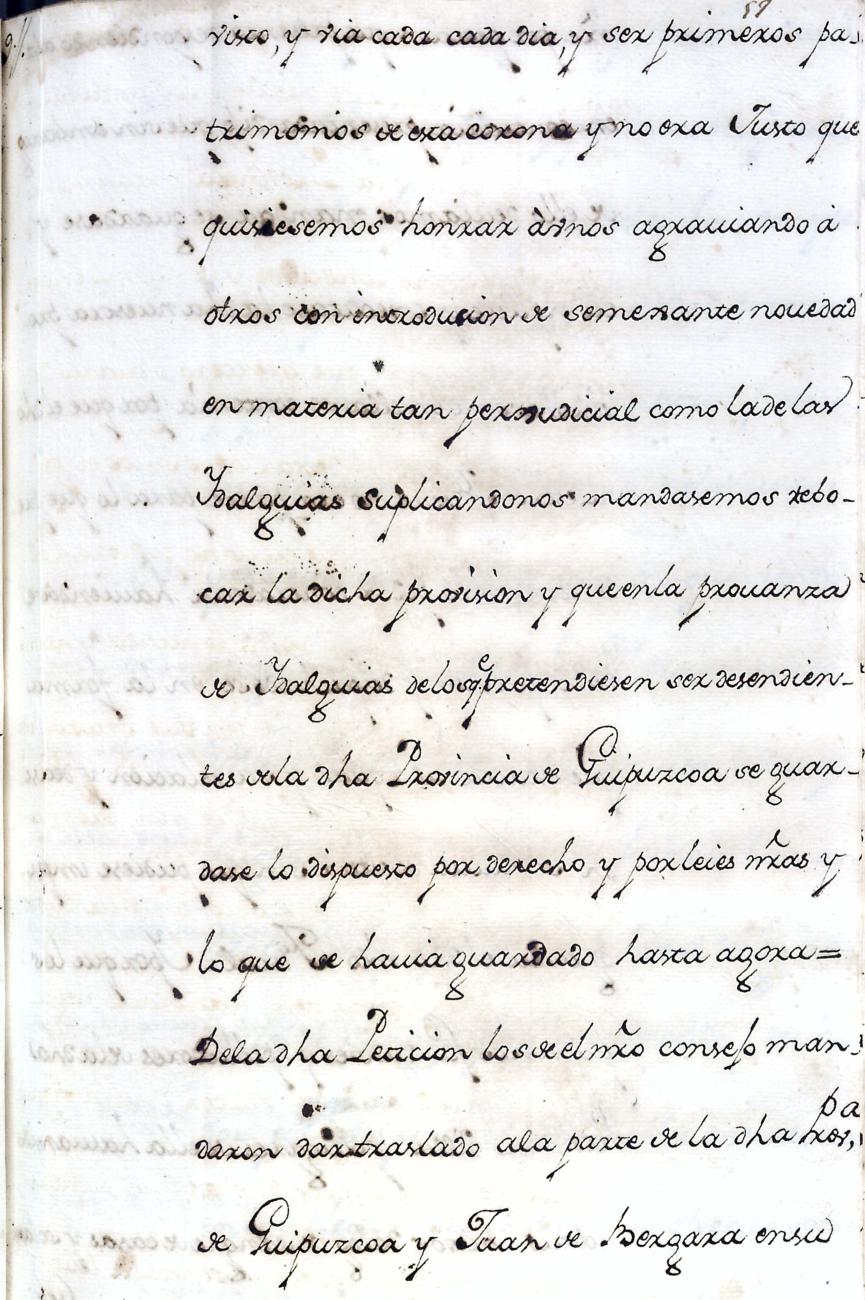 57
visto, y via cada cada dia, y ser primeros pa-
trimonios de está corona y no era Justo que
quisiesemos honrar àvnos agrauiando á
otros con introducion de semexante nouedad
en materia tan perxudicial como la de las
Ydalguias suplicandonos mandasemos rebo-
car la dicha provision y que en la prouanza
de Ydalguias de los qᵉ pretendiesen ser desendien-
tes de la dha Provincia de Guipuzcoa se guar-
dase lo dispuesto por derecho y por leies nr̃as y
lo que se hauia guardado hasta agora=
De la dha Peticion los de el nr̃o consejo man-
daron dar traslado a la parte de la dha Provª,
de Guipuzcoa y Juan de Bergara en su